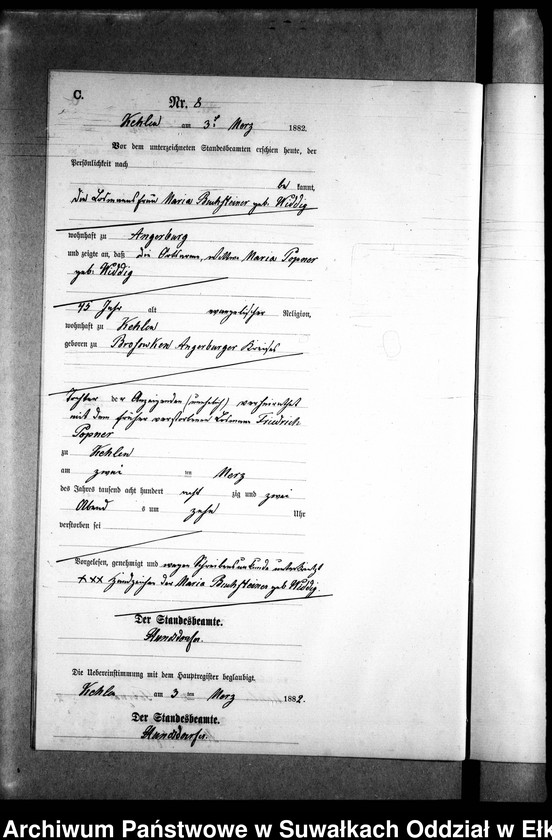 C.
Nr. 8
Kehlen am 3t Merz 1882.
Vor dem unterzeichneten Standesbeamten erschien heute, der
Persönlichkeit nach
be kannt,
die Losmannsfrau Maria geb. Widdig
wohnhaft zu Angerburg
und zeigte an, daß die Ortsarme, Wittwe Maria Popner
geb. Widdig
45 Jahr alt evangelischer Religion,
wohnhaft zu Kehlen
geboren zu Brosowken Angerburger Kreises
Tochter der Anzeigenden (unehelich) verheirathet
mit dem früher verstorbenen Losmann Friedrich
Popner
zu Kehlen
am zwei ten Merz
des Jahres tausend acht hundert acht zig und zwei
Abend s um zehn Uhr
verstorben sei
Vorgelesen, genehmigt und wegen Schreibensunkunde unterkreuzt
+++ Handzeichen der Maria geb. Widdig.
Der Standesbeamte.
Die Uebereinstimmung mit dem Hauptregister beglaubigt.
Kehlen am 3 ten Merz 1882.
Der Standesbeamte.
Archiwum Państwowe w Suwałkach Oddział w Ełk